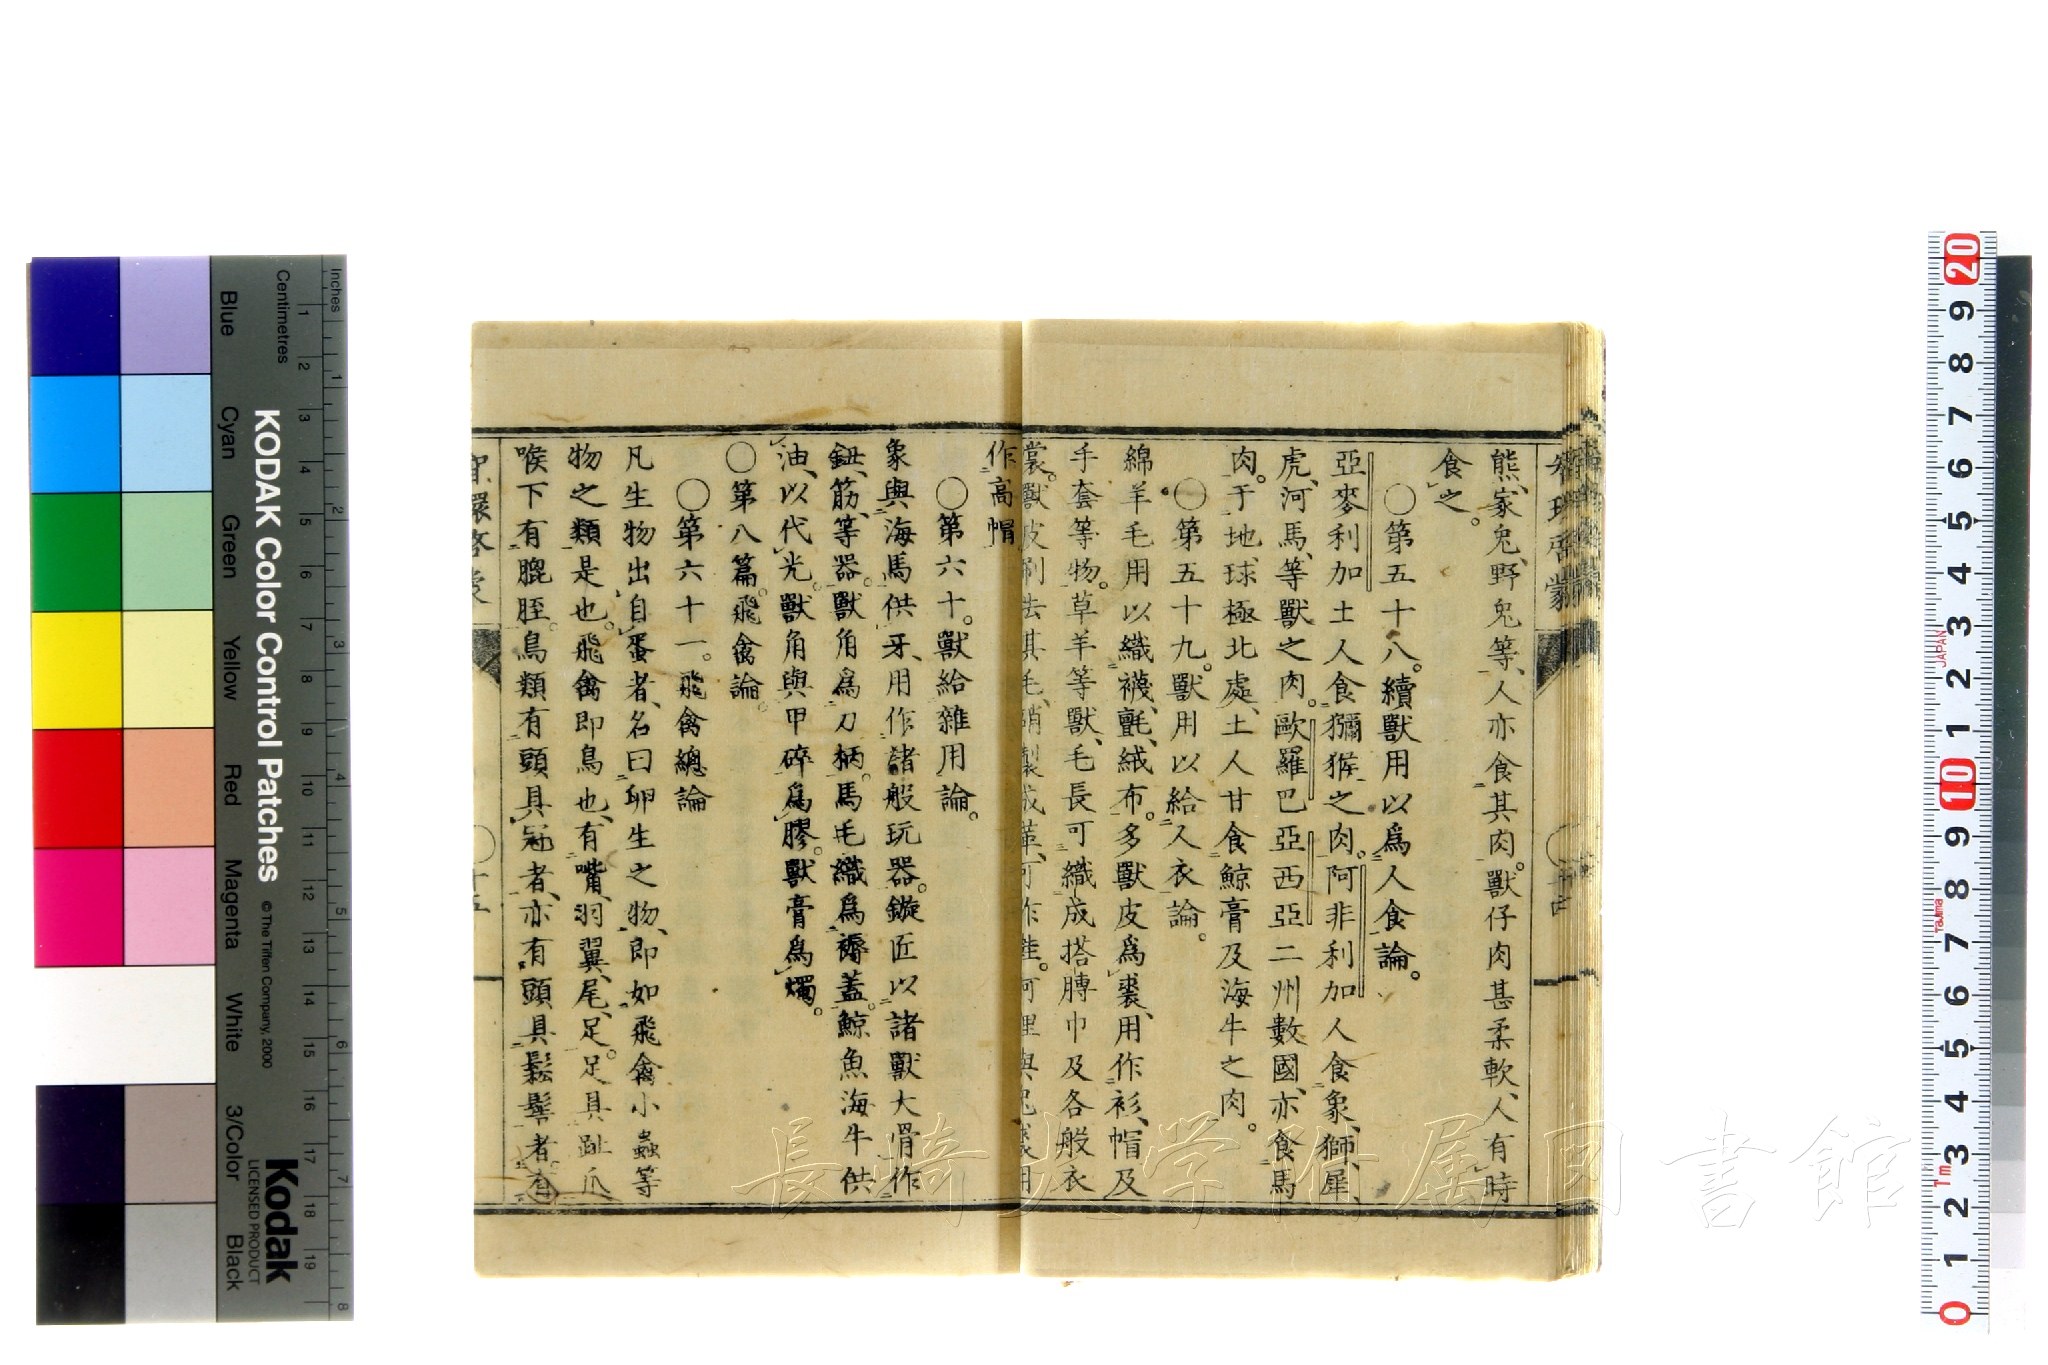 熊、家兔、野兔等、人亦食其肉。獸仔肉甚柔軟、人有時
食之。
〇第五十八。續獸用以爲人食論。
亞麥利加土人食獼猴之肉。阿非利加人食象、獅、犀、
虎、河馬、等獸之肉。歐羅巴亞西亞二州數國、亦食馬
肉。于地球極北處、土人甘食鯨膏及海牛之肉。
〇第五十九。獸用以給人衣論。
綿羊毛用以織襪、氈、絨布。多獸皮爲裘、用作衫、帽及
手套等物。草羊等獸、毛長可織成搭膊巾及各般衣
裳。獸皮刷去其毛、硝製成革、可作鞋。河狸與兔、裘用
作高帽
〇第六十。獸給雜用論。
象與海馬供牙、用作諸般玩器。鏇匠以諸獸大骨作
鈕、筋、等器。獸角爲刀柄。馬毛織爲褥蓋。鯨魚海牛供
油、以代光。獸角與甲碎爲膠。獸膏爲燭。
〇第八篇。飛禽論。
〇第六十一。飛禽總論
凡生物出自蛋者、名曰卵生之物、即如飛禽小蟲等
物之類是也。飛禽即鳥也、有嘴、羽翼、尾、足。足具趾爪
喉下有膍胵。鳥類有頭具冠者、亦有頭具鬆髻者。有
智環啓蒙
〇十五
長崎大学附属図書館
KODAK Color Control Patches
© The Tiffen Company, 2000
Kodak
LICENSED PRODUCT
Inches
Centimetres
Blue
Cyan
Green
Yellow
Red
Magenta
White
3/Color
Black
1 2 3 4 5 6 7 8 9 10 11 12 13 14 15 16 17 18 19
1 2 3 4 5 6 7 8
20 9 8 7 6 5 4 3 2 1 10 9 8 7 6 5 4 3 2 1 0
JAPAN
Tajima
1m